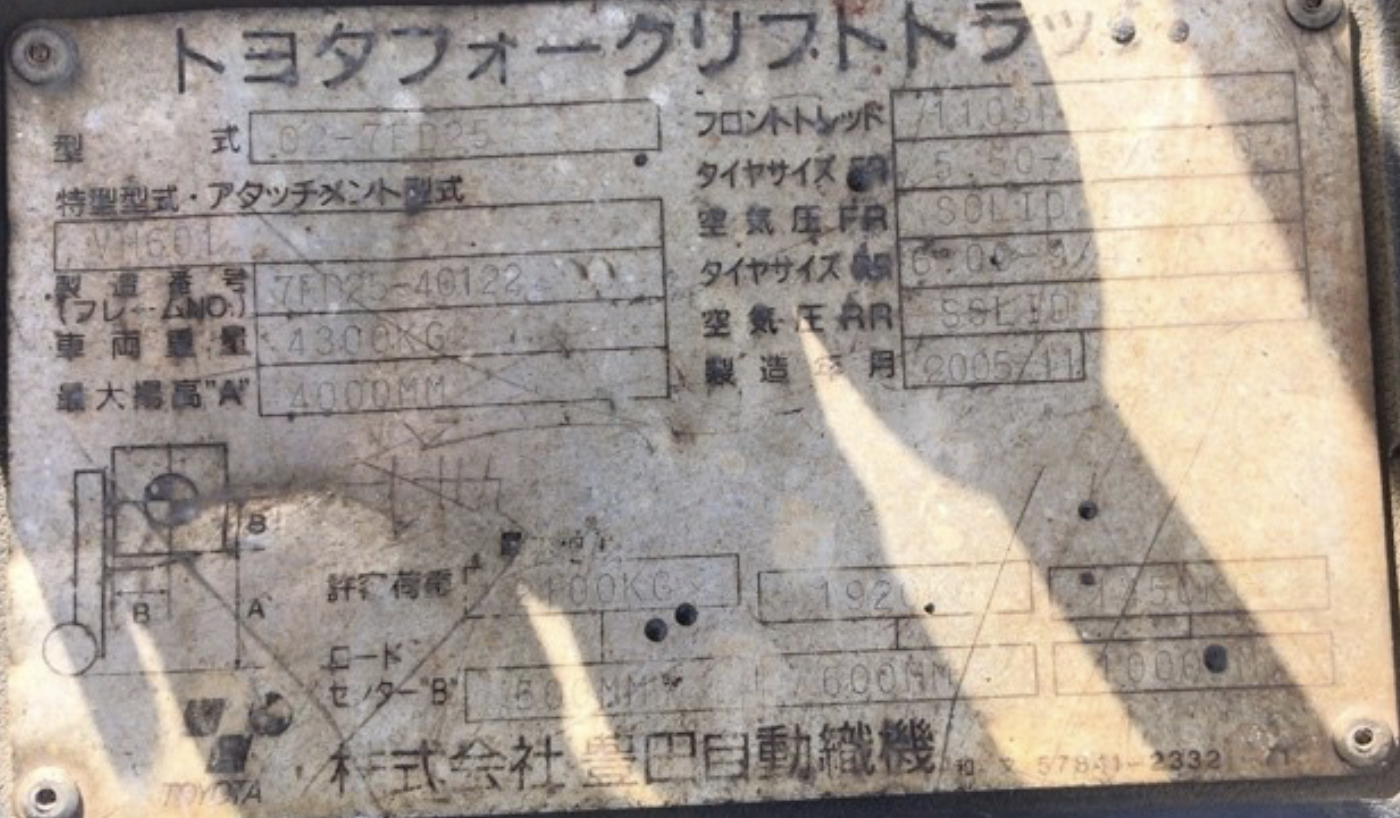 トヨタフォークリフトトラッ
型 式 02-7FD25
特型型式・アタッチメント型式
VM601
製造番号 7FD25-40122
(フレームNO.)
車両重量 4300KG
最大揚高"A" 4000MM
フロントトレッド
タイヤサイズ FR
空気圧FR SOLID
タイヤサイズ RR
空気圧RR SOLID
製造年月 2005-11
B
B A
許容荷重
ロード
センター"B" 500MM 600MM
TOYOTA
株式会社 豊田自動織機
57841-2332